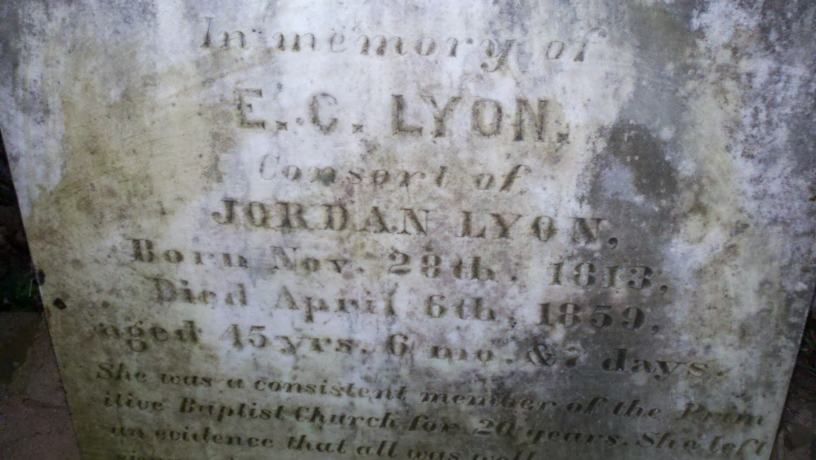 In memory of
E. C. LYON,
Consort of
JORDAN LYON,
Born Nov. 28th, 1813,
Died April 6th, 1859,
aged 45 yrs. 6 mo. & 7 days.
She was a consistent member of the Prim
itive Baptist Church for 20 years. She left
an evidence that all was well